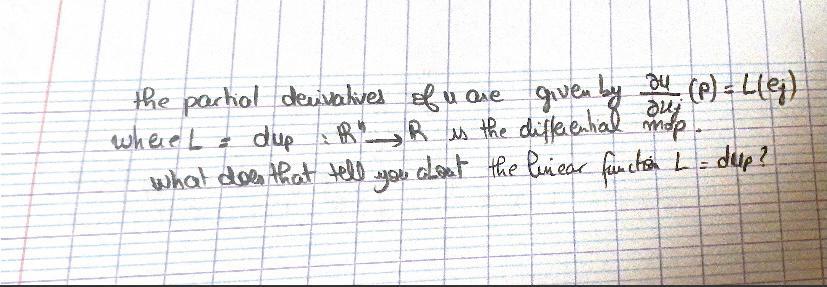 the partial derivatives of u are given by ∂u/∂uj (p) = L(ej)
where L = dup : ℝⁿ → ℝ is the differential map.
what does that tell you about the linear function L = dup?